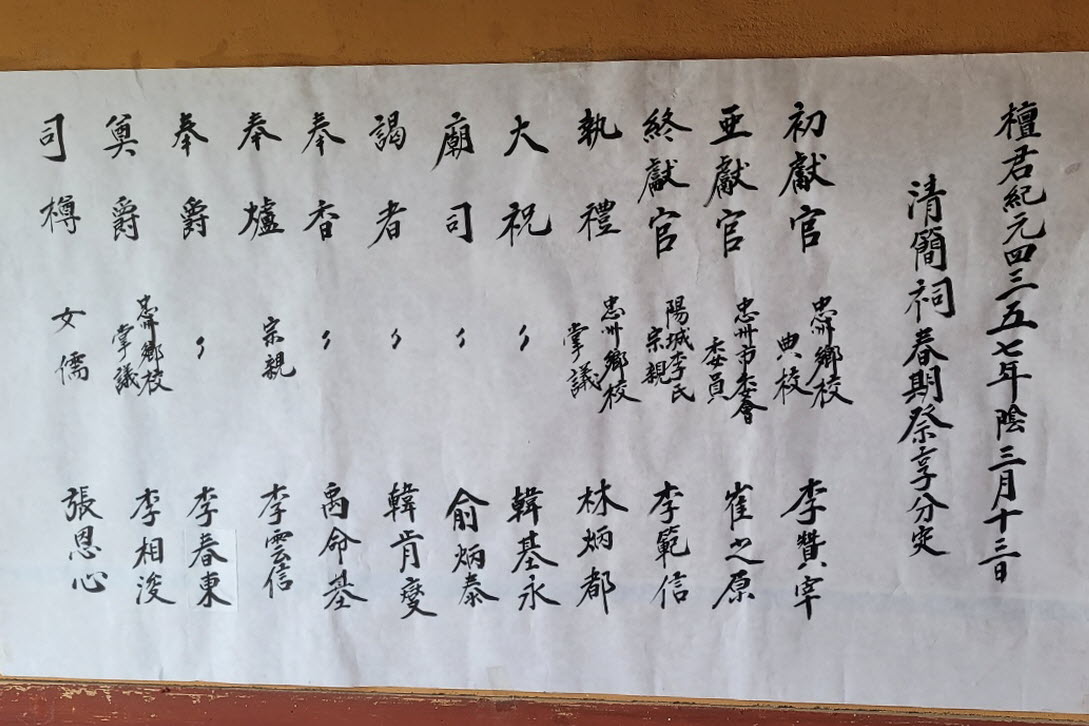 檀君紀元四三五七年陰三月十三日
清簡祠春期祭享分定
初獻官 忠州鄉校 典校 李贊宰
亜獻官 忠州市委會 委員 崔之原
終獻官 陽城李氏 宗親 李範信
執禮 忠州鄉校 掌議 林炳都
大祝 〃 韓基永
廟司 〃 俞炳泰
謁者 〃 韓肯燮
奉香 〃 禹命基
奉爐 宗親 李雲信
奉爵 〃 李春東
奠爵 忠州鄉校 掌議 李相浚
司樽 女儒 張恩心